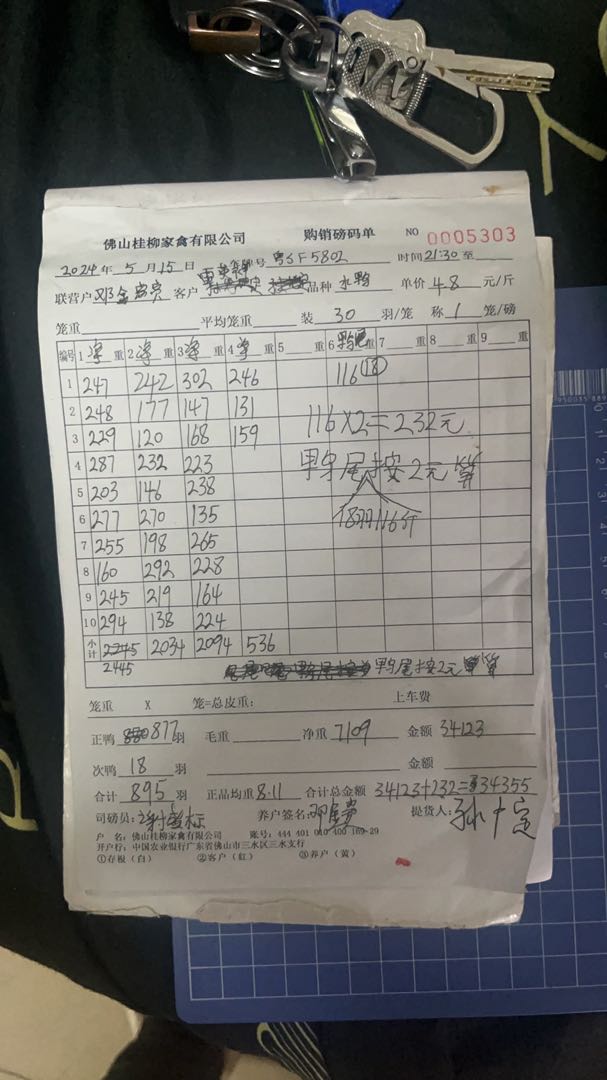 佛山桂柳家禽有限公司 购销磅码单 NO 0005303
2024年5月15日 车牌号 粤SF5802 时间21:30至
联营户 客户 品种 水鸭 单价 4.8 元/斤
笼重 平均笼重 装 30 羽/笼 称 1 笼/磅
编号 1 净 重 2 净 重 3 净 重 4 净 重 5 重 6 鸭尾 重 7 重 8 重 9 重
1 247 242 302 246 116 (18)
2 248 177 147 131
116×2=232元
3 229 120 168 159
4 287 232 223
鸭尾按2元算
5 203 146 238
6 277 270 135
18羽116斤
7 255 198 265
8 160 292 228
9 245 219 164
10 294 138 224
小计 2245 2034 2094 536
2445 鸭尾按2元算
笼重 X 笼=总皮重: 上车费
正鸭 877羽 毛重 净重 7109 金额 34123
次鸭 18 羽 金额
合计 895 羽 正品均重 8.11 合计总金额 34123+232=34355
司磅员: 养户签名: 提货人:
户 名: 佛山桂柳家禽有限公司 账号: 444 401 010 400 169 29
开户行: 中国农业银行广东省佛山市三水区三水支行
①存根（白） ②客户（红） ③养户（黄）